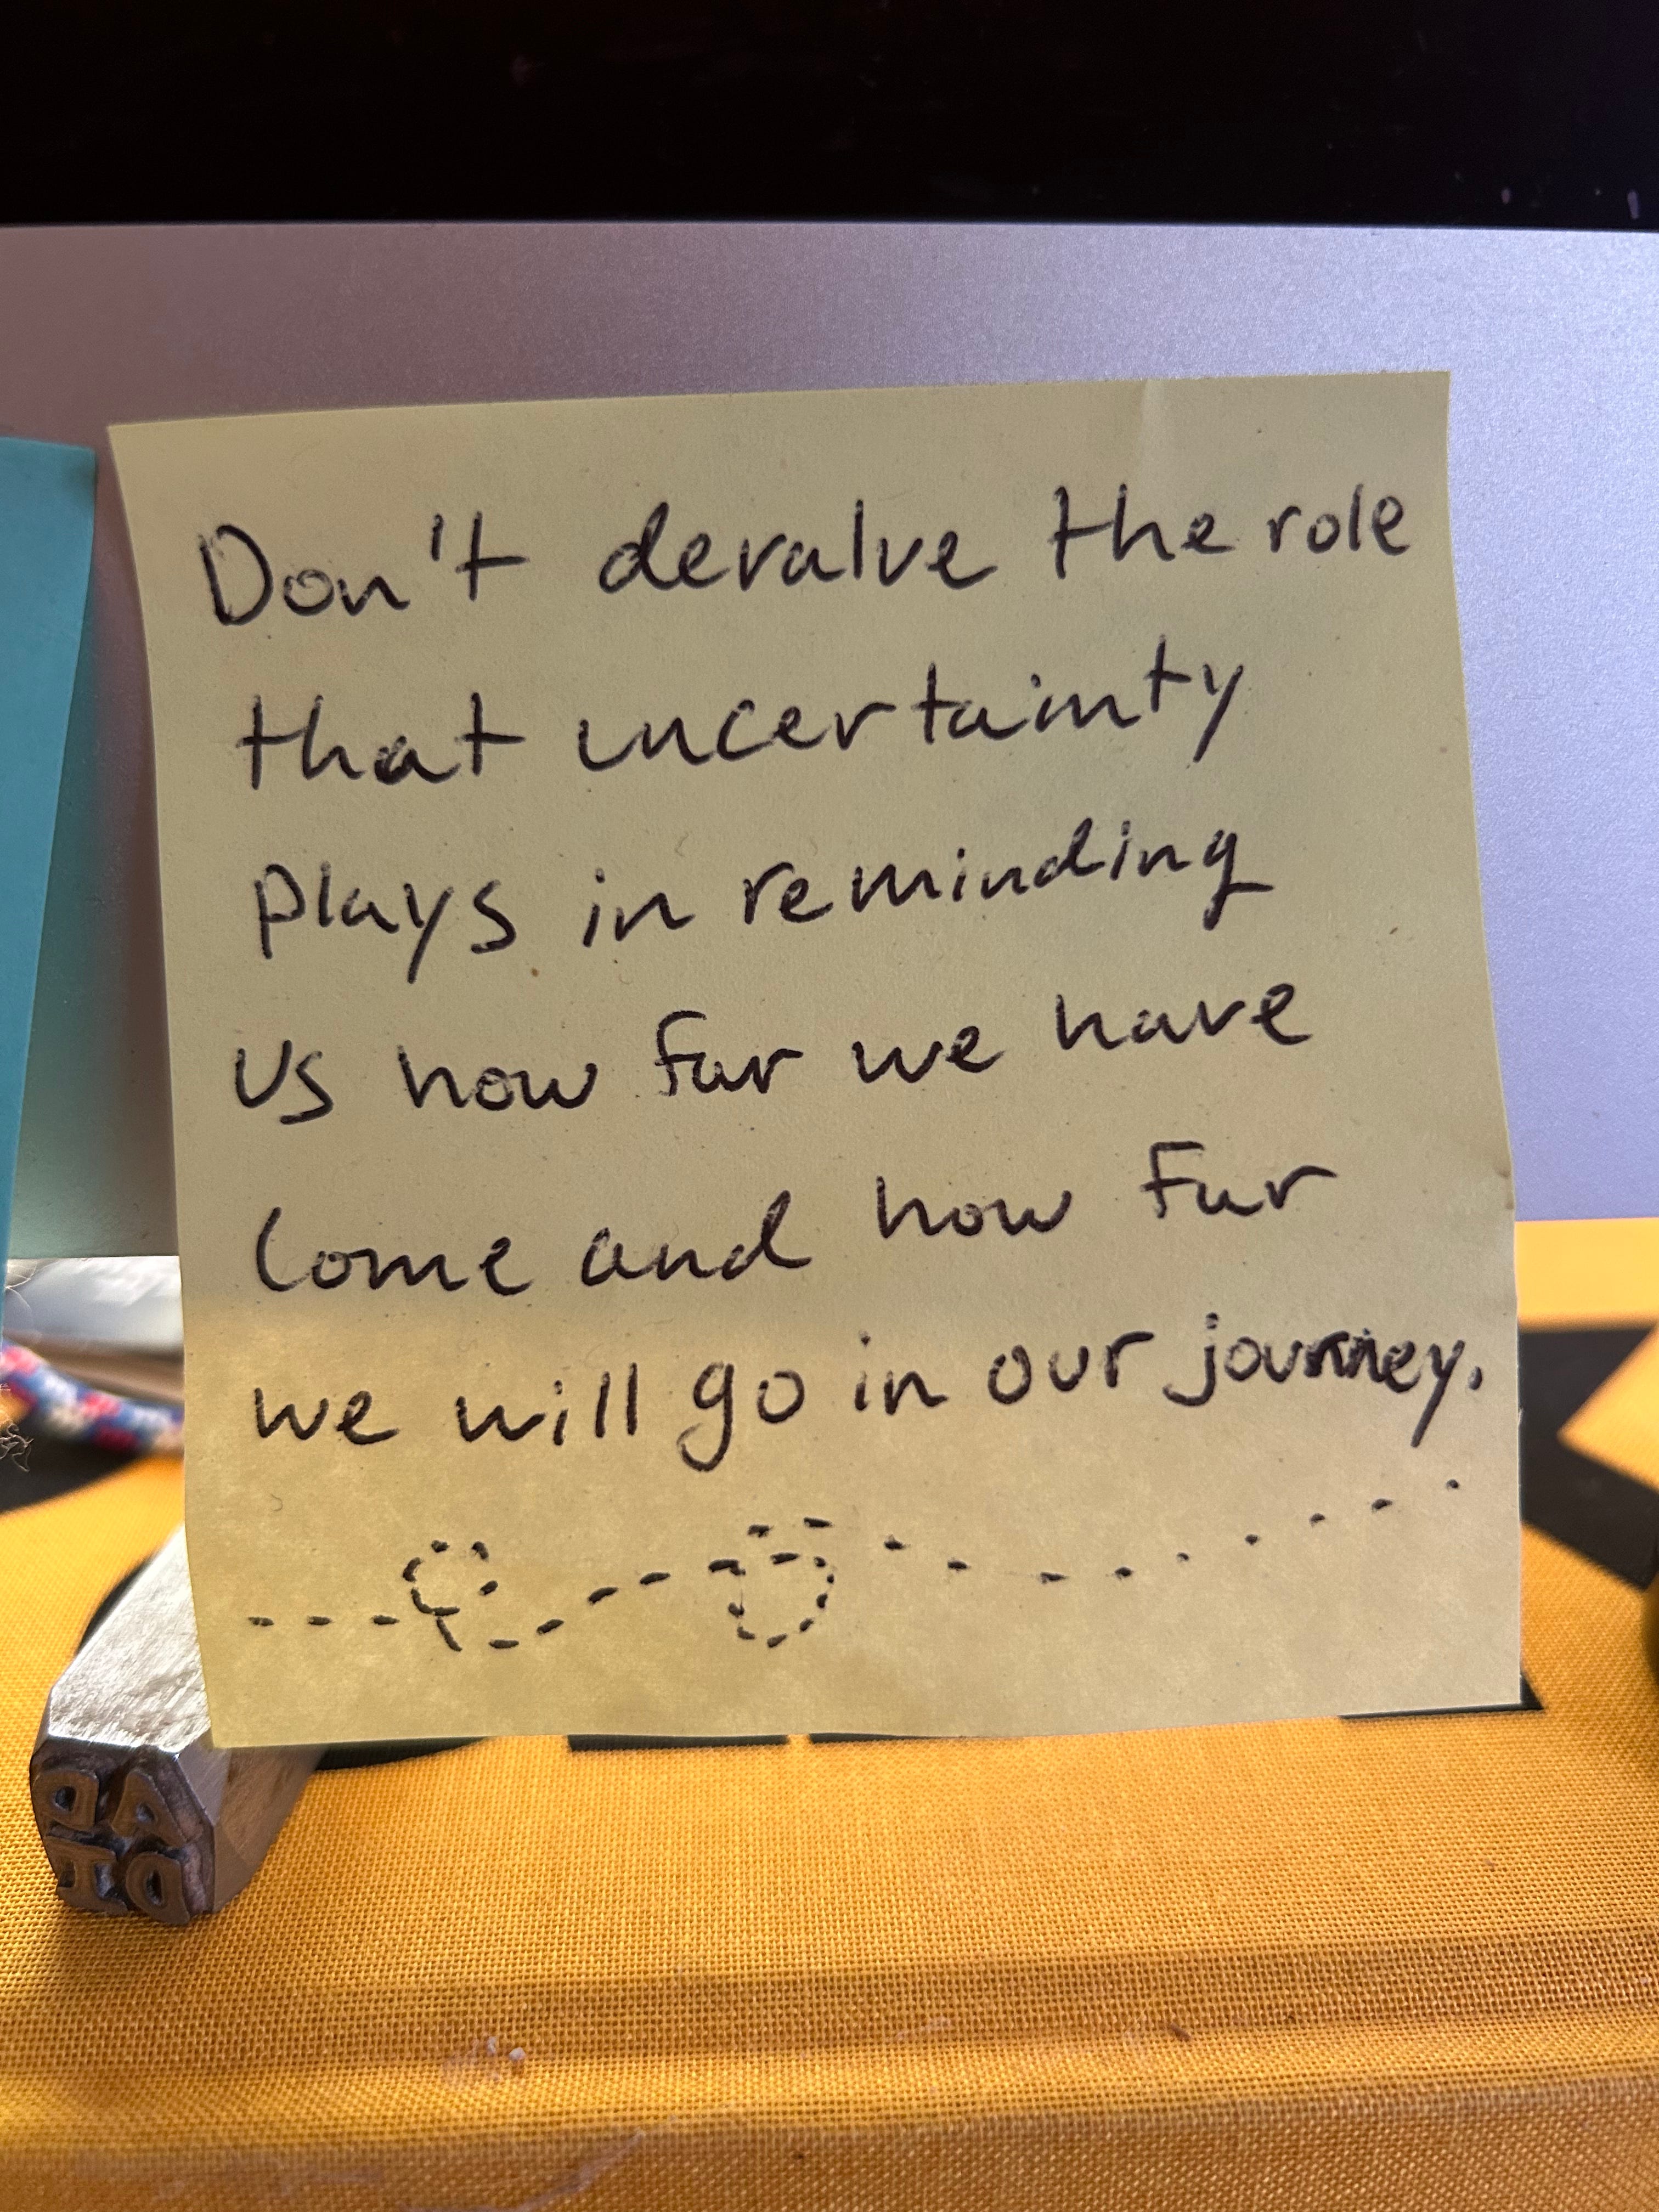 Don't devalue the role
that uncertainty
plays in reminding
us how far we have
come and how far
we will go in our journey.
PAID